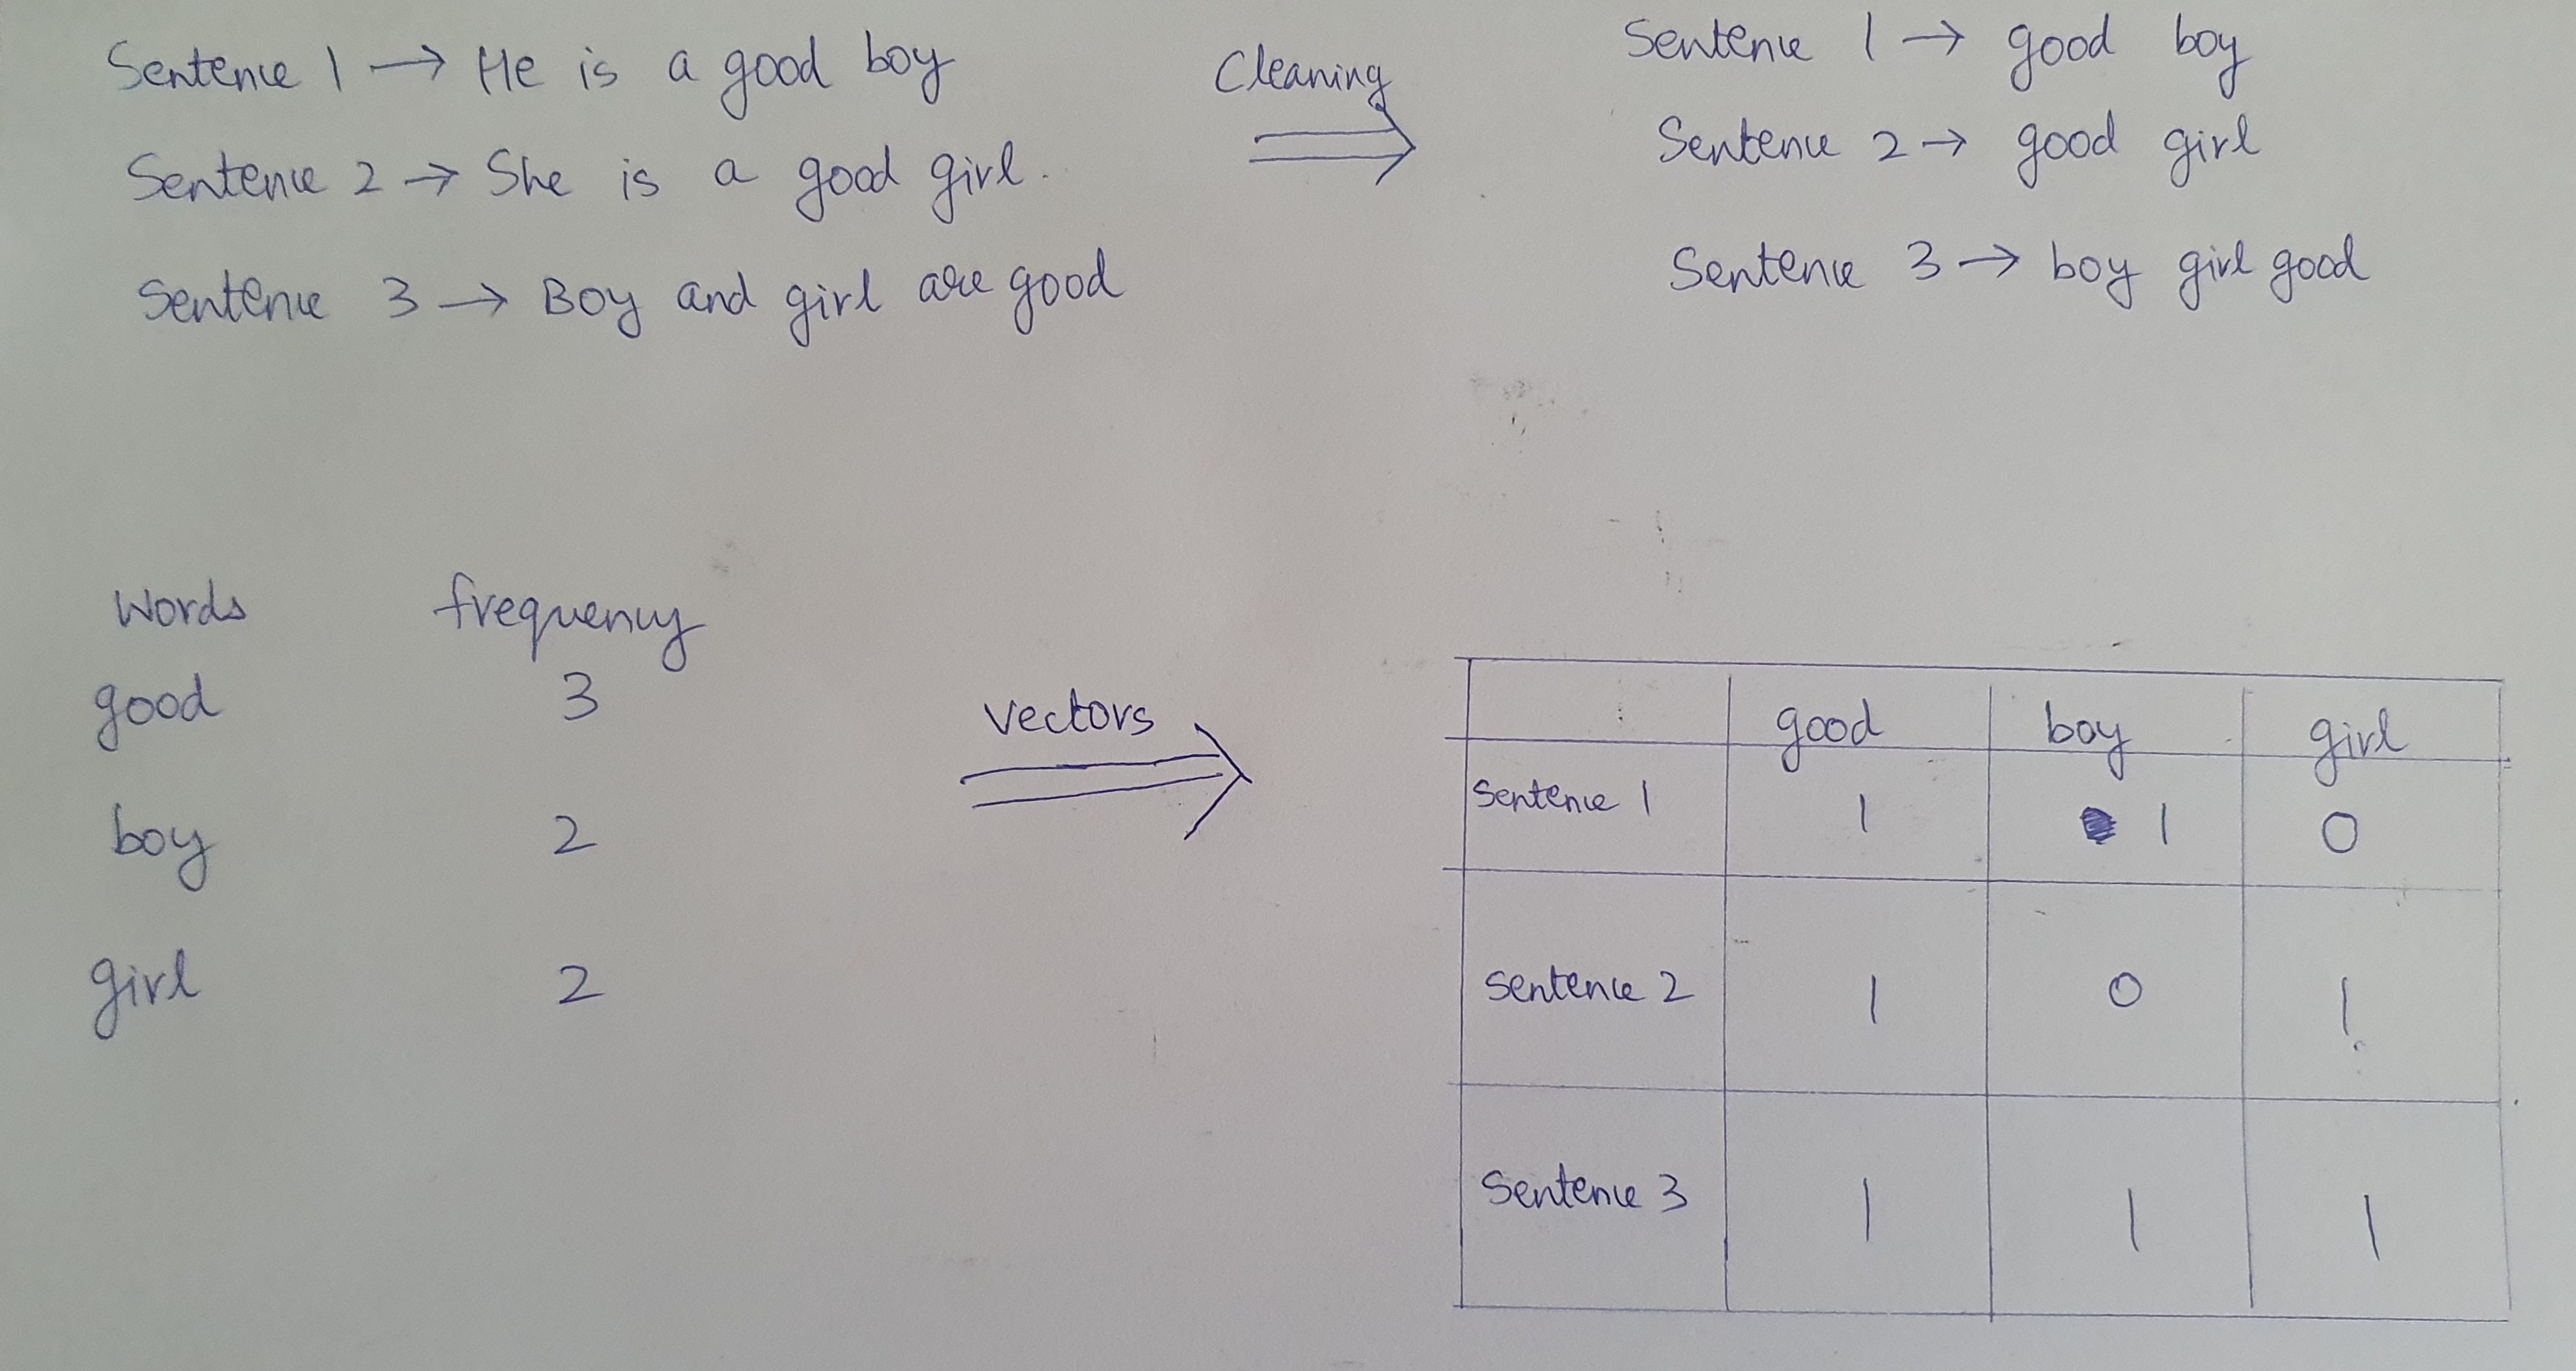 Sentence 1 → He is a good boy
Sentence 2 → She is a good girl.
Sentence 3 → Boy and girl are good
Cleaning
Sentence 1 → good boy
Sentence 2 → good girl
Sentence 3 → boy girl good
Words frequency
good 3
boy 2
girl 2
vectors
good boy girl
Sentence 1 1 1 0
Sentence 2 1 0 1
Sentence 3 1 1 1